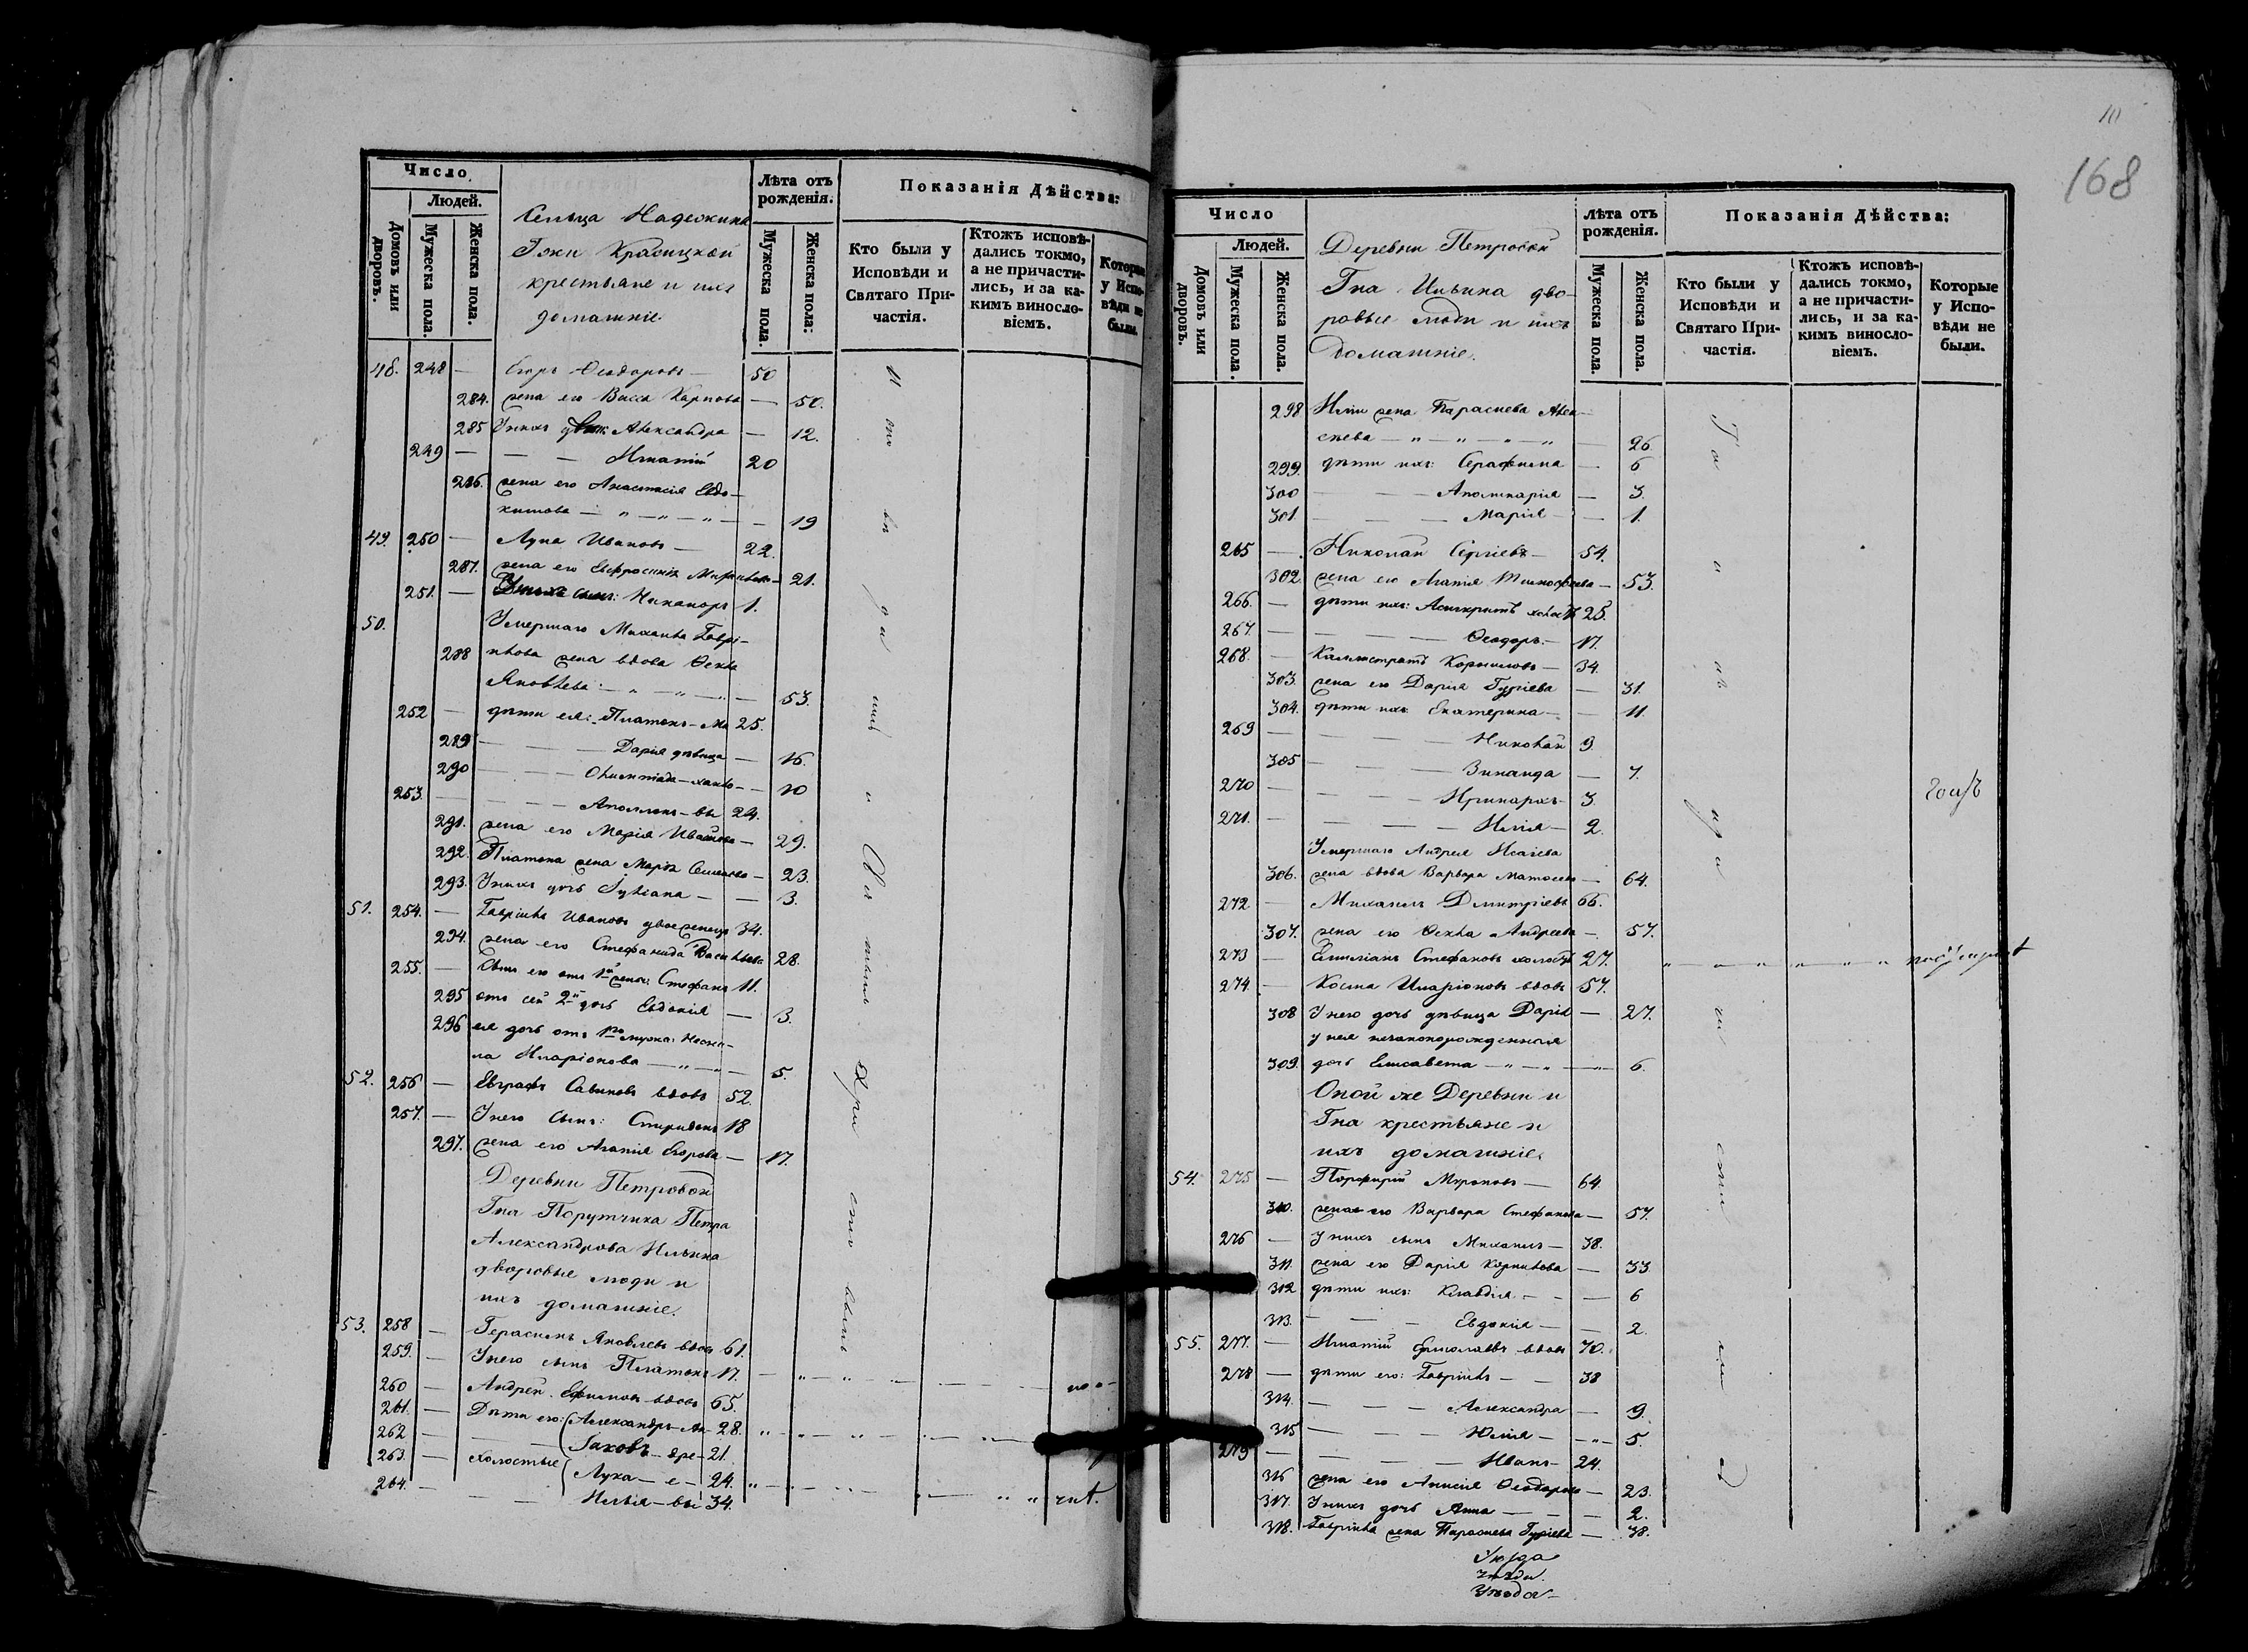 Число.
Людей.
Домовъ или дворовъ.
Мужеска пола.
Женска пола.
Лѣта отъ рожденія.
Мужеска пола.
Женска пола:
Показанія Дѣйства:
Кто были у Исповѣди и Святаго Причастія.
Ктожъ исповѣдались токмо, а не причастились, и за какимъ винословіемъ.
Которые у Исповѣди не были.
Сельца Надежкина
Гжи Красицкой
крестьяне и ихъ
домашніе.
48. 248 — Егоръ Ѳеодоровъ — 50
284. жена его Васса Карпова — 50.
285 У нихъ Александра — 12.
249 — — — Игнатій 20
286. жена его Анастасія Евдо-
кимова — " — " — " — — 19
49. 250 — Лука Ивановъ — 22.
287. жена его Евфросинія — 21.
251. — Никаноръ 1.
50. Умершаго Михаила Гаврі-
288 илова жена вдова Ѳекла
Яковлева — " — " — " — 53.
252 — дѣти ея: Платонъ 25.
289 — — — Дарія дѣвица — 16.
290 — — — Олимпіада — 10
253. — — — Аполлонъ 24.
291. жена его Марія Иванова — 29.
292. Платона жена Марѳа Семенова — 23.
293. У нихъ дочь Іуліана — — 3.
51. 254. — Гавріилъ Ивановъ двоеженецъ 34.
294. жена его Стефанида Васильева 28.
255. — Сынъ его отъ 1й жены: Стефанъ 11.
295 отъ сей 2й дочь Евдокія — 3.
296 ея дочь отъ 1го мужа:
ла Иларіонова — " — " — 5.
52. 256 — Евграфъ Савиновъ вдовъ 52.
257. — У него сынъ: Спиридонъ 18
297. жена его Агапія Егорова — 17.
Деревни Петровой
Гна Порутчика Петра
Александрова Ильина
дворовые люди и
ихъ домашніе.
53. 258 — Герасимъ Яковлевъ вдовъ 61.
259. — У него сынъ Платонъ 17.
260 — Андрей Ефимовъ вдовъ 65.
261. — Дѣти его: Александръ 28.
262 — — Іаковъ 21.
263. — холостые Лука 24.
264. — — — Илья 34.
И они да и Св. Хри
168
Число
Людей.
Домовъ или дворовъ.
Мужеска пола.
Женска пола.
Лѣта отъ рожденія.
Мужеска пола.
Женска пола.
Показанія Дѣйства:
Кто были у Исповѣди и Святаго Причастія.
Ктожъ исповѣдались токмо, а не причастились, и за какимъ винословіемъ.
Которые у Исповѣди не были.
Деревни Петровой
Гна Ильина дво-
ровые люди и ихъ
домашніе.
298 Иліи жена Параскева Алек-
сѣева — " — " — " — " — 26.
299. дѣти ихъ: Серафима — 6
300 — — — Аполинарія — 3.
301. — — — Марія — — 1.
265 — Николай Сергіевъ — 54.
302. жена его Агапія Тимофеева — 53.
266. — дѣти ихъ: Асигкритъ холостъ 25.
267. — — — Ѳеодоръ — 17.
268. — Каллистратъ Корниловъ — 34.
303. жена его Дарія Гуріева — 31.
304. дѣти ихъ: Екатерина — — 11.
269 — — — Николай 9.
305 — — — Зинаида — 7.
270 — — — Иринархъ 3.
271. — — — Илія — 2.
Умершаго Андрея Исаіева
306. жена вдова Варвара — 64.
272 — Михаилъ Димитріевъ 66.
307. жена его Ѳекла Андреева — 57.
273 — Емиліанъ Стефановъ холостъ 27.
274. — Косма Иларіоновъ вдовъ 57.
308 У него дочь дѣвица Дарія — 27.
у нея незаконорожденная
309. дочь Елисавета — " — " — 6.
Оной же Деревни и
Гна крестьяне и
ихъ домашніе.
54. 275 — Порфирій Мироновъ — 64.
310. жена его Варвара Стефанова — 57.
276 — У нихъ сынъ Михаилъ — 38.
311. жена его Дарія Корнилова — 33.
312 дѣти ихъ: Клавдія — — 6
313. — — — Евдокія — — 2.
55. 277. — Игнатій вдовъ 70.
278 — дѣти его: Гавріилъ — — 38
314. — — — Александра — 9.
315 — — — Юлія — — " — 5.
279 — — — Иванъ — 24.
316 жена его Анисія Ѳеодорова — 23.
317. У нихъ дочь Анна — — — 2.
318. Гавріила жена Параскева Гуріева — 38.